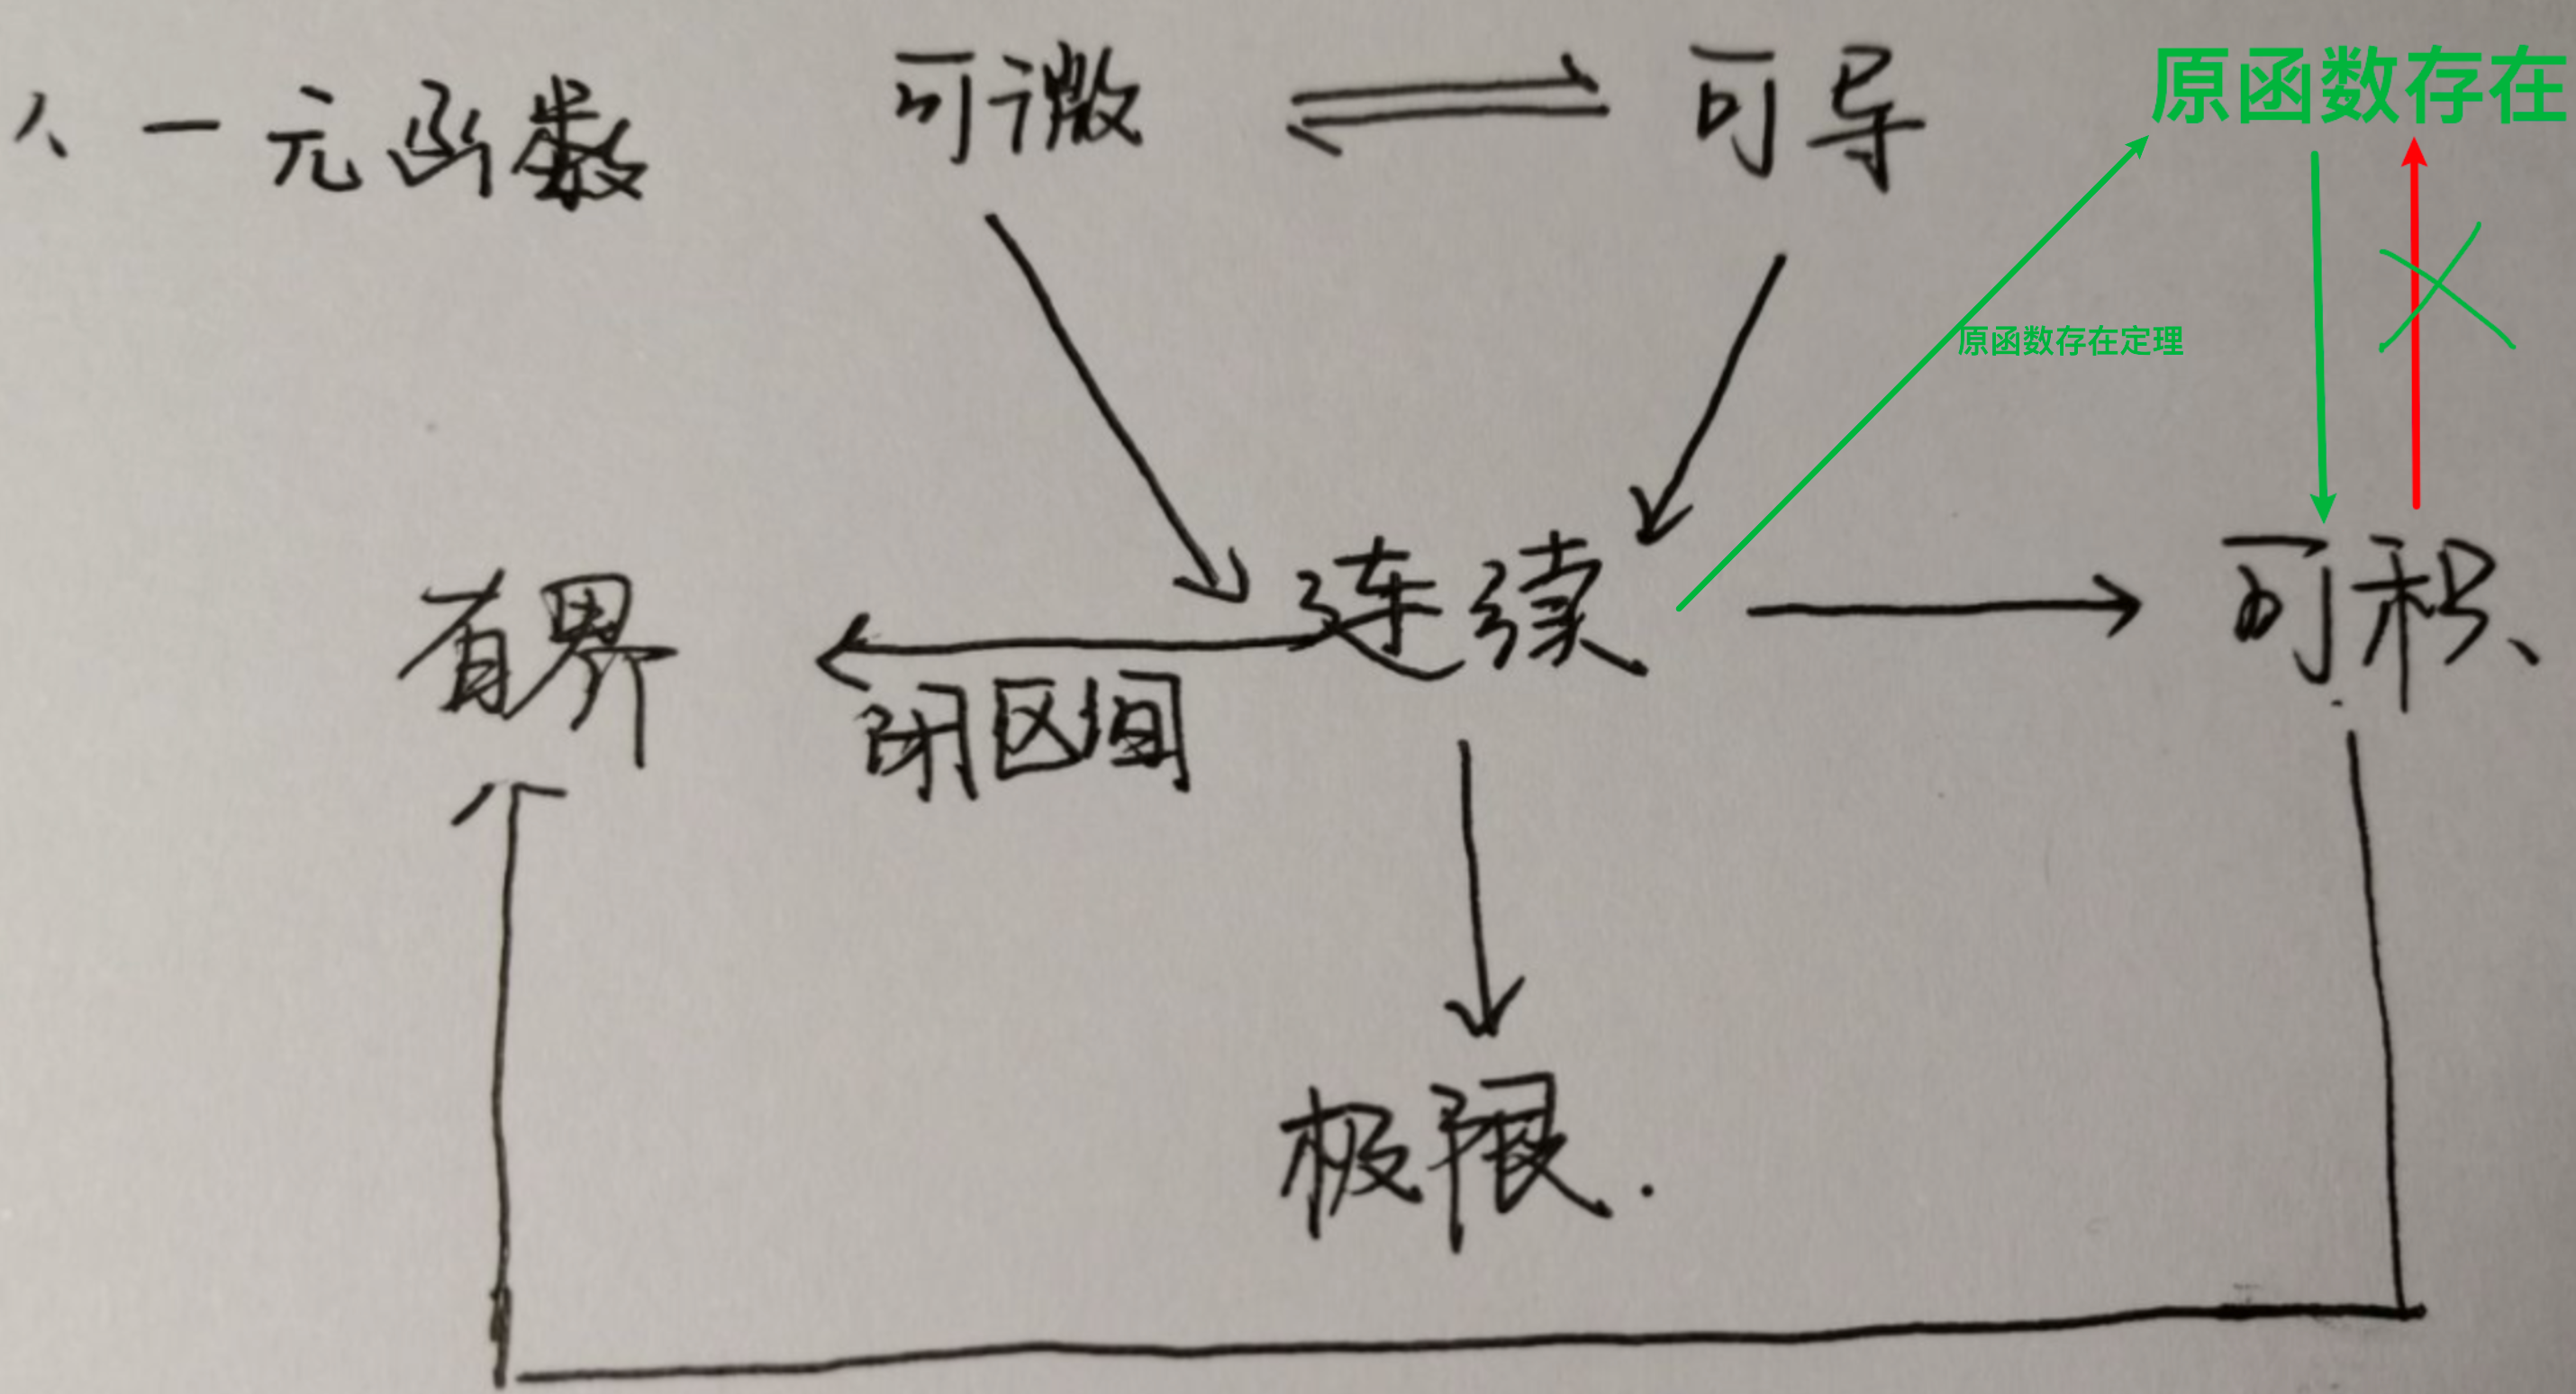 一元函数
可微
可导
原函数存在
原函数存在定理
有界
连续
可积
闭区间
极限.